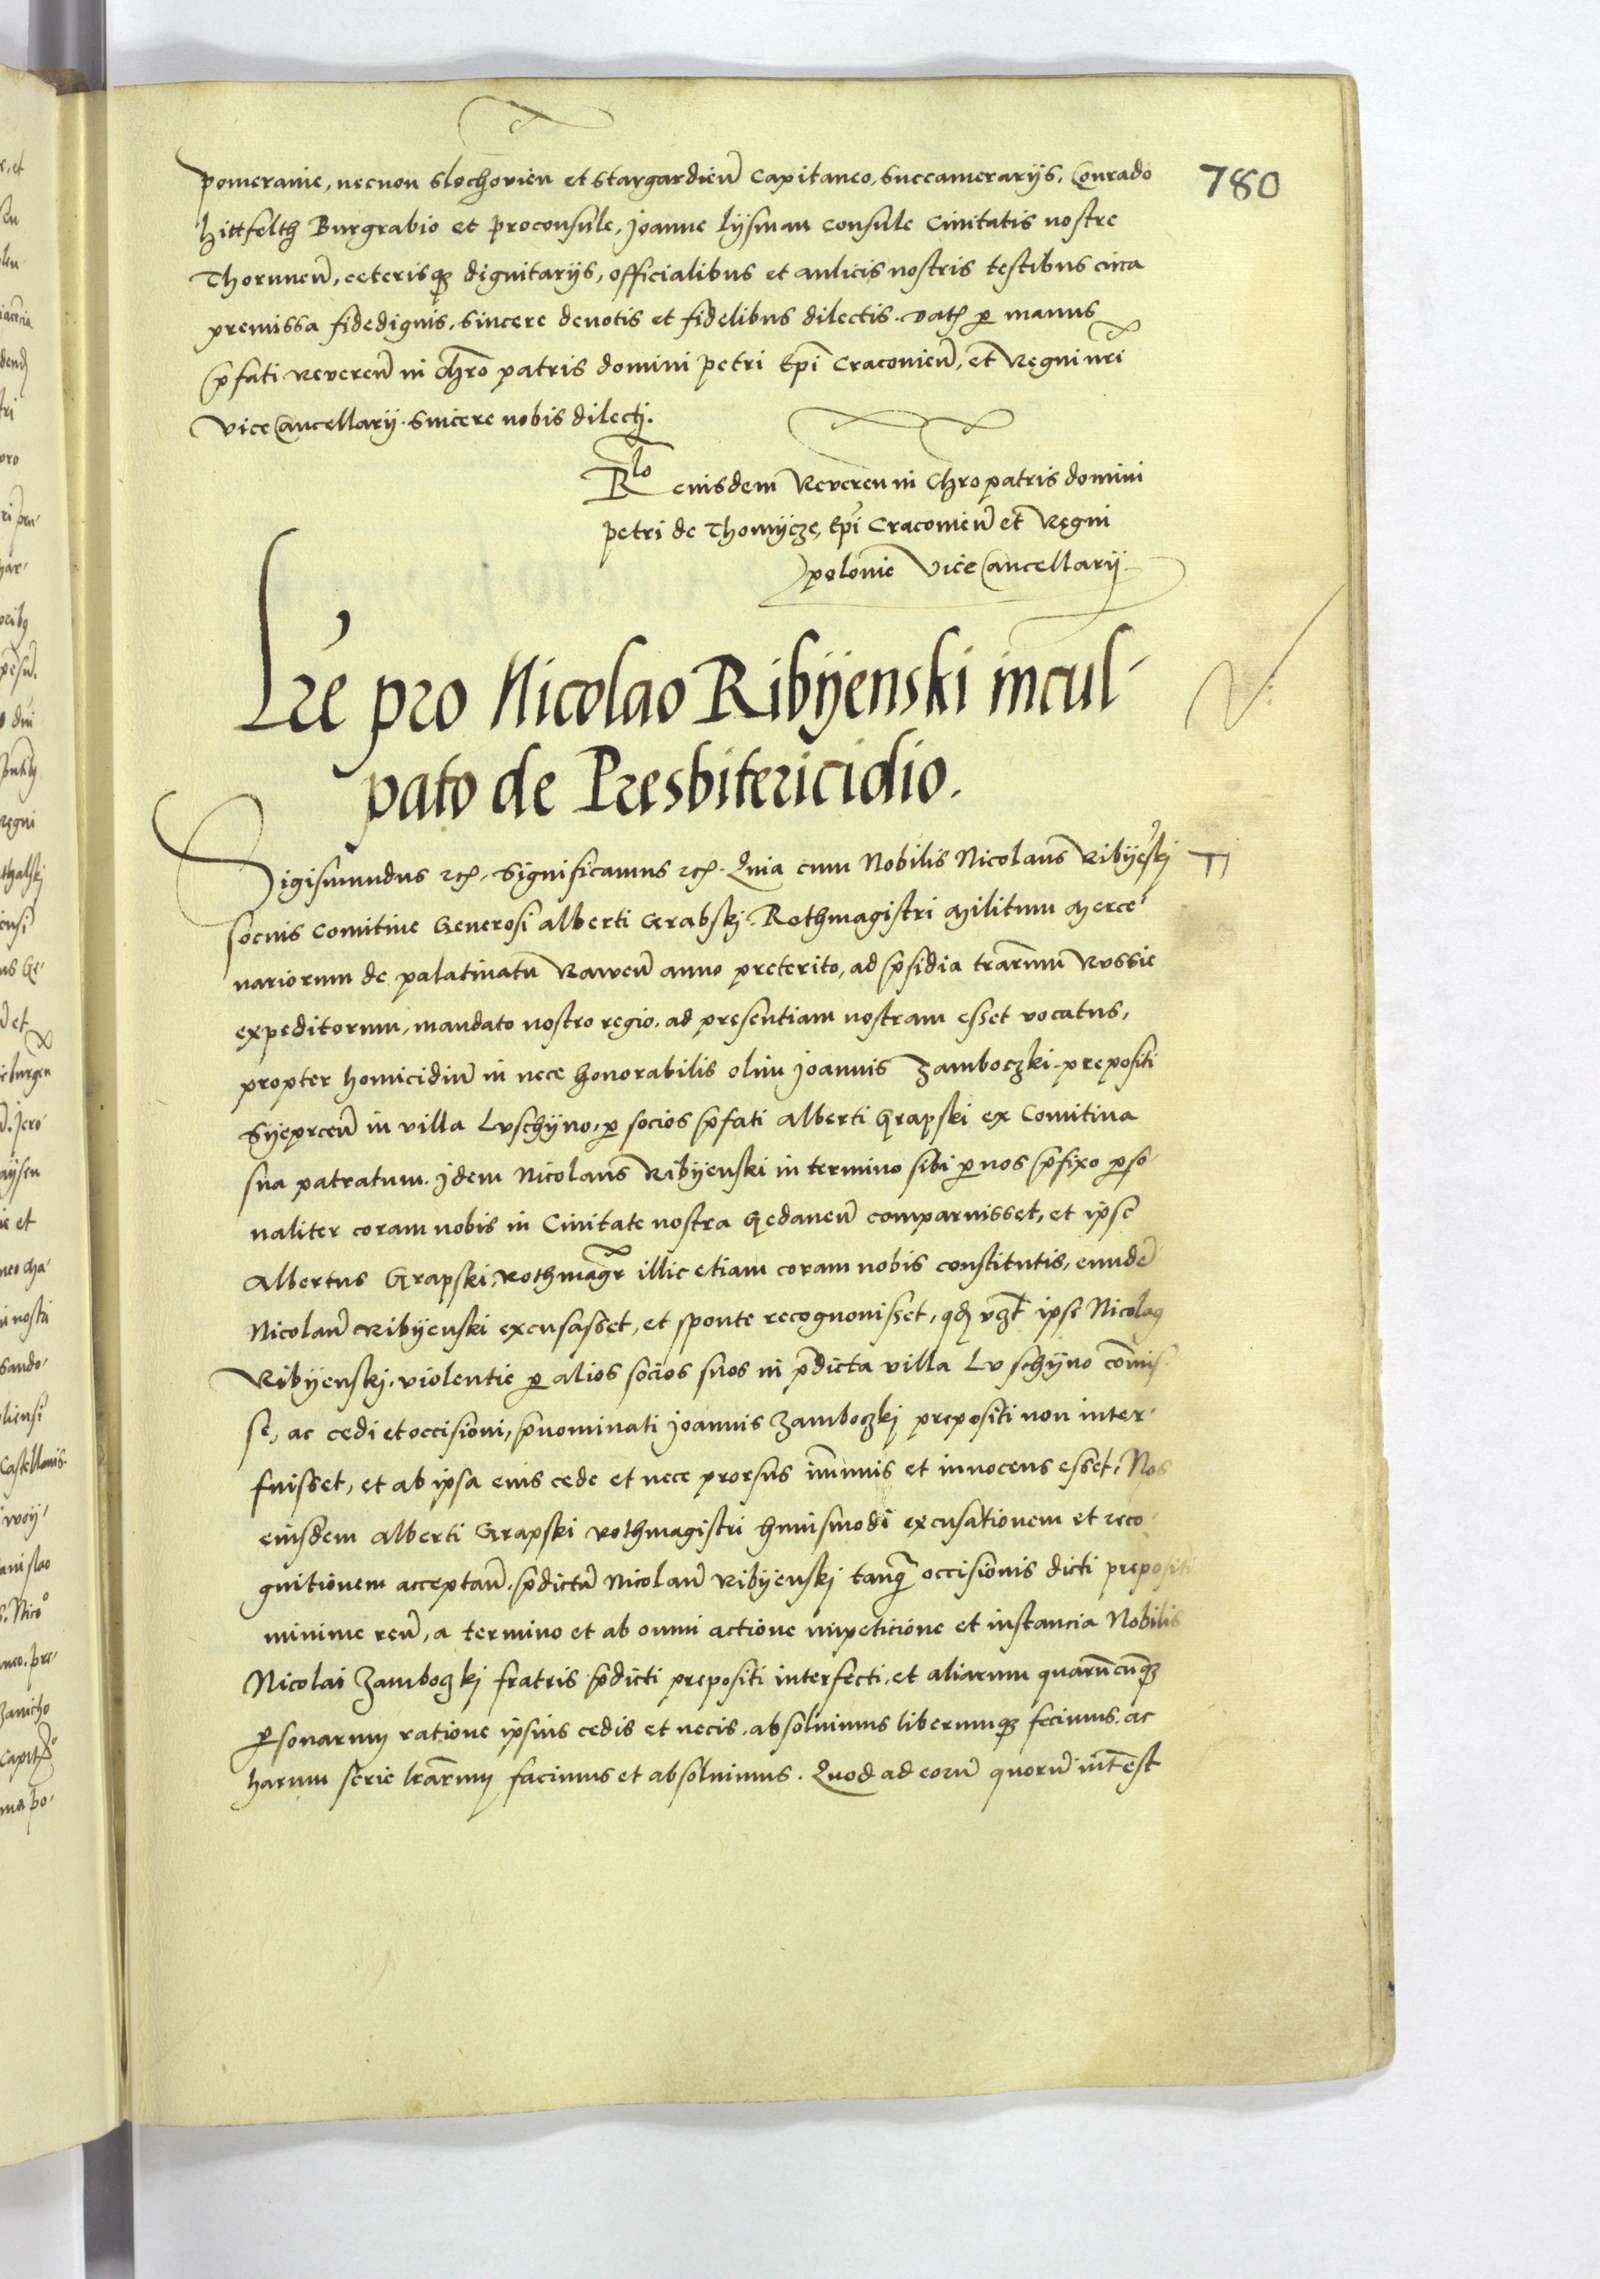 780
pomeranie, necnon Slochovien et Stargardien̄ Capitaneo, Succamerarijs, Conrado
hittfelth Burgrabio et proconsule, Joanne lijsman Consule Civitatis nostre
Thorunen̄, ceterisq₃ dignitarijs, officialibus et aulicis nostris testibus circa
premissa fidedignis, sincere devotis et fidelibus dilectis. Dat̄ p manus
p̄fati Reveren̄ in chr̄o patris domini petri Ep̄i Cracovien̄, et Regni nr̄i
vice Cancellarij. sincere nobis dilectj.
Rlo eiusdem Reveren in Chro patris domini
petri de Thomijcze, Ep̄i Cracovien̄ et Regni
polonie Vice Cancellarij
Lr̄e pro Nicolao Ribijenski incul-
pato de Presbitericidio.
Sigismundus etc. Significamus etc. Quia cum Nobilis Nicolaus Ribijeskj
socius Comitive Generosi alberti Grabskj. Rothmagistri Militum Merce-
nariorum de palatinatu Rawen̄ anno preterito, ad p̄sidia tr̄arum Russie
expeditorum, mandato nostro regio, ad presentiam nostram esset vocatus,
propter homicidiū in nece honorabilis olim Joannis Zamboczki. prepositi
Sijeprcen̄ in villa Luschijno, p socios p̄fati alberti Grapski ex Comitiva
sua patratum. Jdem Nicolaus Ribijenski in termino sibi p nos p̄fixo pso-
naliter coram nobis in Civitate nostra Gedanen̄ comparuisset, et ipse
Albertus Grapski, Rothmagr̄ illic etiam coram nobis constitutis, eundē
Nicolaū Ribijenski excusasset, et sponte recognovisset, qđ vz̄t ipse Nicolaꝯ
Ribijenskj. violentie p alios socios suos in p̄dicta villa Luschijno com̄is-
se, ac cedi et occisioni, p̄nominati Joannis Zamboczkj prepositi non inter-
fuisset, et ab ipsa eius cede et nece prorsus im̄unis et innocens esset, Nos
eiusdem alberti Grapski Rothmagistri huiusmodi excusationem et reco-
gnitionem acceptan̄. p̄dictū Nicolaū Ribijenskj tanq̄ occisionis dicti prepositi
minime reū, a termino et ab omni actione impeticione et instancia Nobilis
Nicolai Zamboczkj fratris p̄dicti prepositi interfecti, et aliarum quarūcūq₃
psonarum ratione ipsius cedis et necis, absolvimus liberumq₃ fecimus, ac
harum serie lr̄arum facimus et absolvimus. Quod ad eorū quorū int̄est